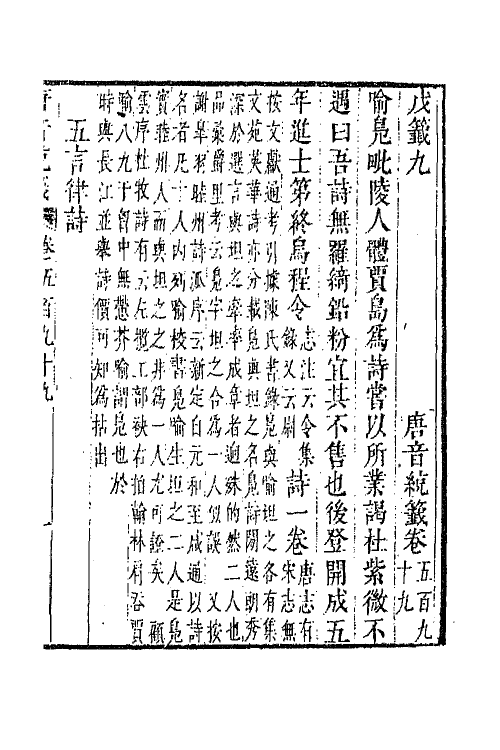 戊籤九
唐音統籤卷五百九十九
喻鳧毗陵人體賈島為詩嘗以所業謁杜紫微不
遇曰吾詩無羅綺鉛粉宜其不售也後登開成五
年進士第終烏程令志注云令集錄又云尉詩一卷唐志有宋志無
按文獻通考引據陳氏書錄鳧與喻坦之各有集
文苑英華詩亦分載鳧與坦之名鳧詩閒遠朗秀
深於選言與坦之牽率成章者迥殊的然二人也
品彙爵里考云鳧字坦之合為一人似誤 又按
謝皋羽睦州詩派序云新定自元和至咸通以詩
名者凡十人內列喻校書鳧喻生坦之二人是鳧
實睦州人而與坦之之非為一人尤可證矣 顧
雲序杜牧詩有云左攬工部袂右拍翰林肩吞賈
喻八九于胷中無慙芥喻謂鳧也於
時與長江並舉詩價可知為拈出
五言律詩
唐音戊籤 卷五百九十九 一